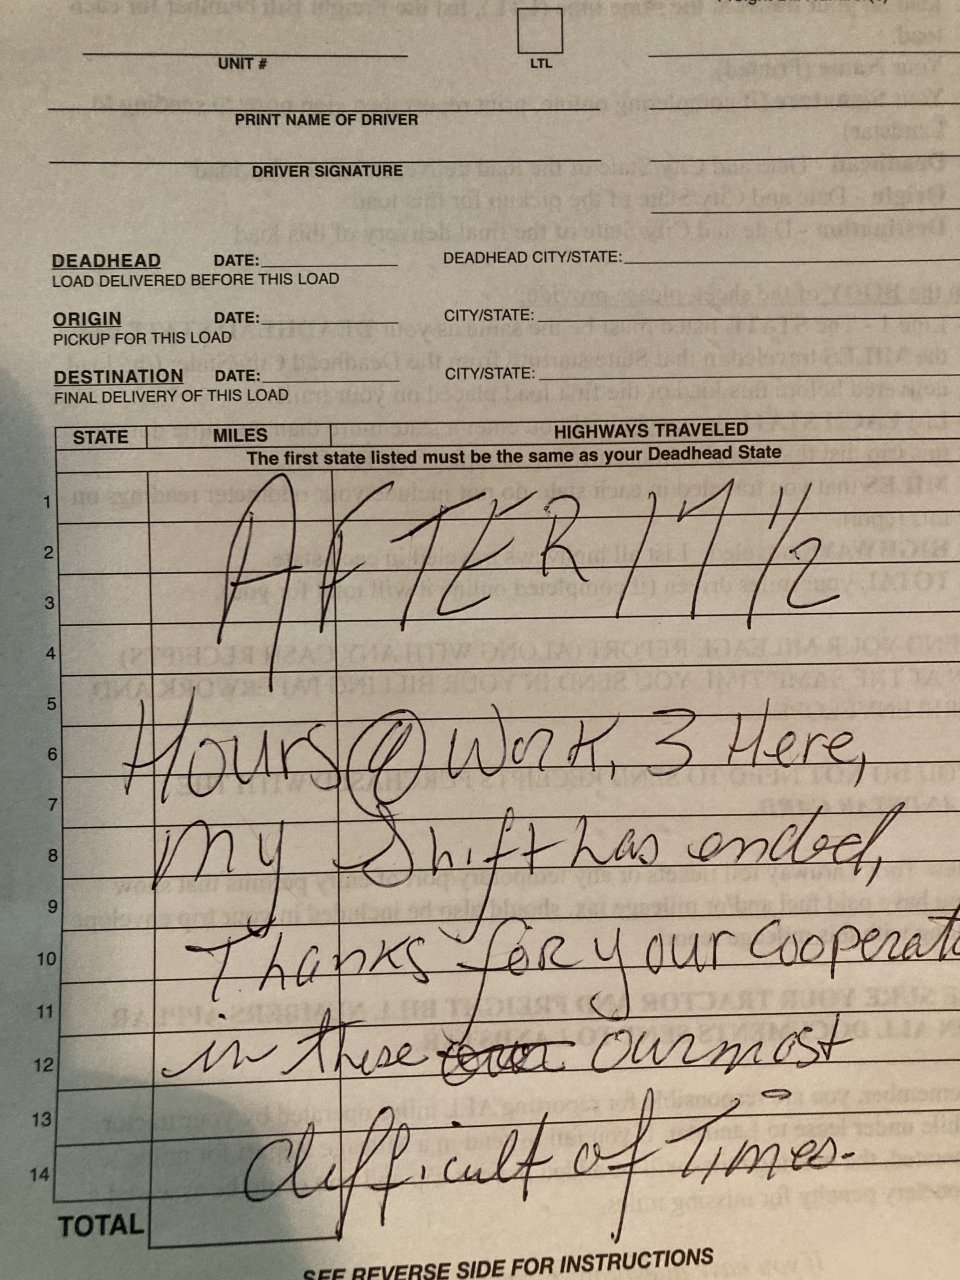 UNIT #
LTL
PRINT NAME OF DRIVER
DRIVER SIGNATURE
DEADHEAD DATE: DEADHEAD CITY/STATE:
LOAD DELIVERED BEFORE THIS LOAD
ORIGIN DATE: CITY/STATE:
PICKUP FOR THIS LOAD
DESTINATION DATE: CITY/STATE:
FINAL DELIVERY OF THIS LOAD
STATE MILES HIGHWAYS TRAVELED
The first state listed must be the same as your Deadhead State
1
2
3
4
5
6
7
8
9
10
11
12
13
14
AFTER 17 1/2
Hours @ Work, 3 Here,
my Shift has ended,
Thanks for your Cooperat
in these our most
difficult of Times.
TOTAL
SEE REVERSE SIDE FOR INSTRUCTIONS